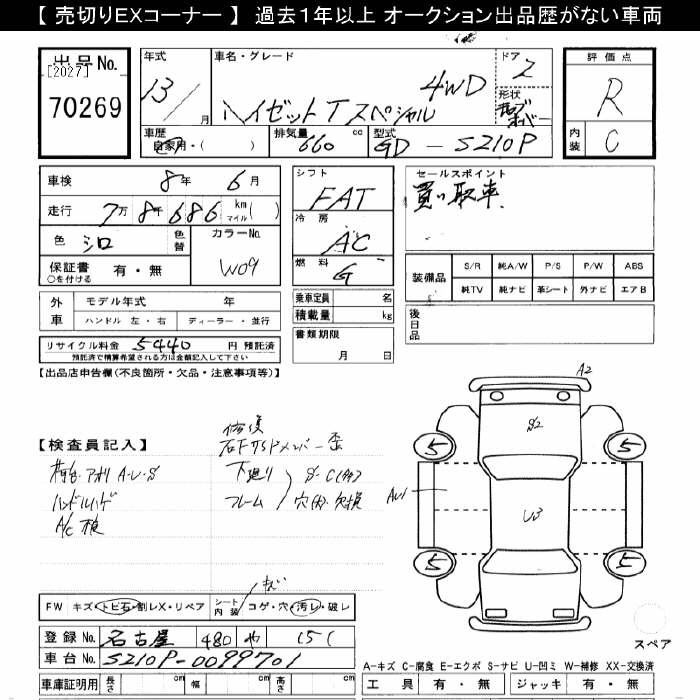 【 売切りEXコーナー 】 過去１年以上 オークション出品歴がない車両
出品No.
[2027]
70269
年式 13 / 月
車名・グレード
4WD
ハイゼットTスペシャル
ドア 2
形状
車歴 自家用・( )
排気量 660 cc
型式 GD - S210P
評価点
R
内装 C
車検 8年 6月
走行 7万8千686 km マイル( )
色 シロ 色替
カラーNo. W09
保証書 有・無
○を付ける
シフト FAT
冷房 AC
燃料 G
乗車定員 名
積載量 kg
書類期限
月 日
セールスポイント
買い取車.
装備品 S/R 純A/W P/S P/W ABS
純TV 純ナビ 革シート 外ナビ エアB
後日品
外車 モデル年式 年
ハンドル 左・右 ディーラー・並行
リサイクル料金 5440 円 預託済
預託済で精算希望される方は金額記入して下さい
【出品店申告欄(不良箇所・欠品・注意事項等)】
【検査員記入】
修復
荷台.アオリ A-U-S
ハンドルハゲ
A/C 検
下廻り S-C(多)
フレーム 穴(有)欠損
A2
S2
5 5
AU1
U3
5 5
スペア
FW キズ・トビ石・割レX・リペア
シート内装 コゲ・穴・汚レ・破レ
キズ
登録No. 名古屋 480 や 151
車台No. S210P-0099701
車庫証明用 長さ cm 幅 cm 高さ cm
A-キズ C-腐食 E-エクボ S-サビ U-凹ミ W-補修 XX-交換済
工具 有・無 ジャッキ 有・無